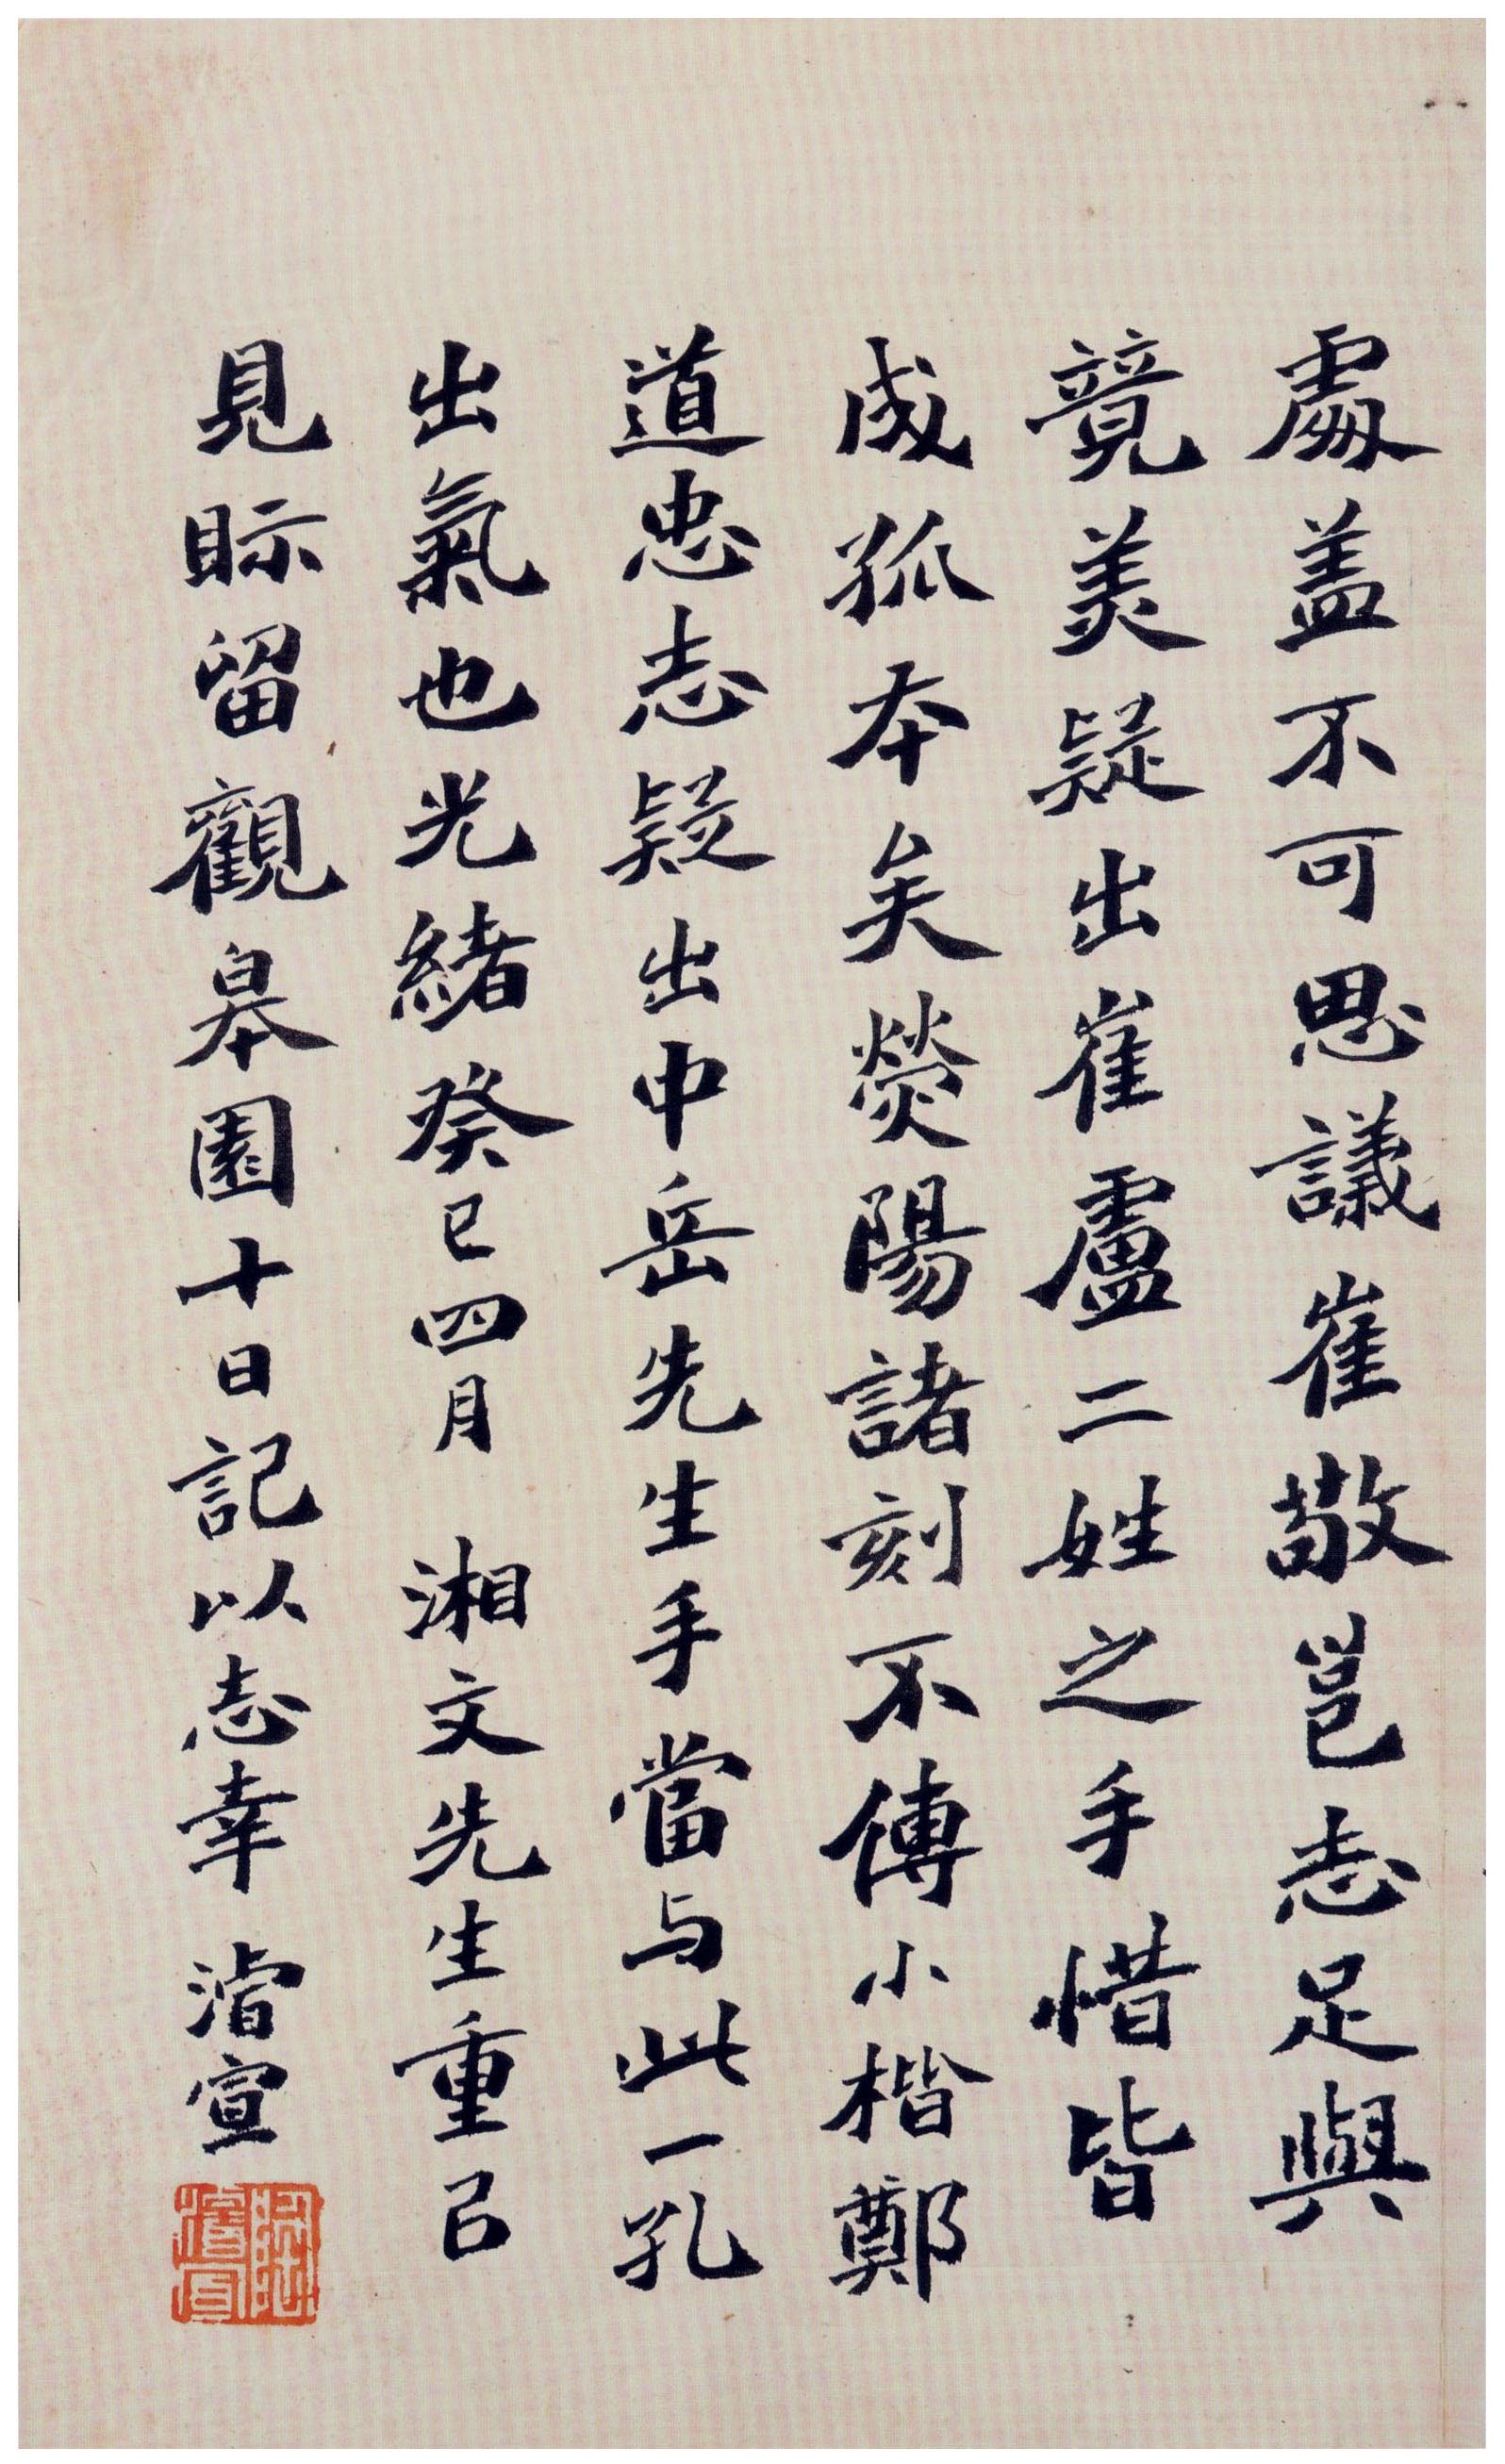 處盖不可思議崔敬邕志足與
竟美疑出崔盧二姓之手惜皆
成孤本矣熒陽諸刻不傳小楷鄭
道忠志疑出中岳先生手當与此一孔
出氣也光緒癸巳四月 湘文先生重㠯
見眎留觀皋園十日記以志幸 濬宣